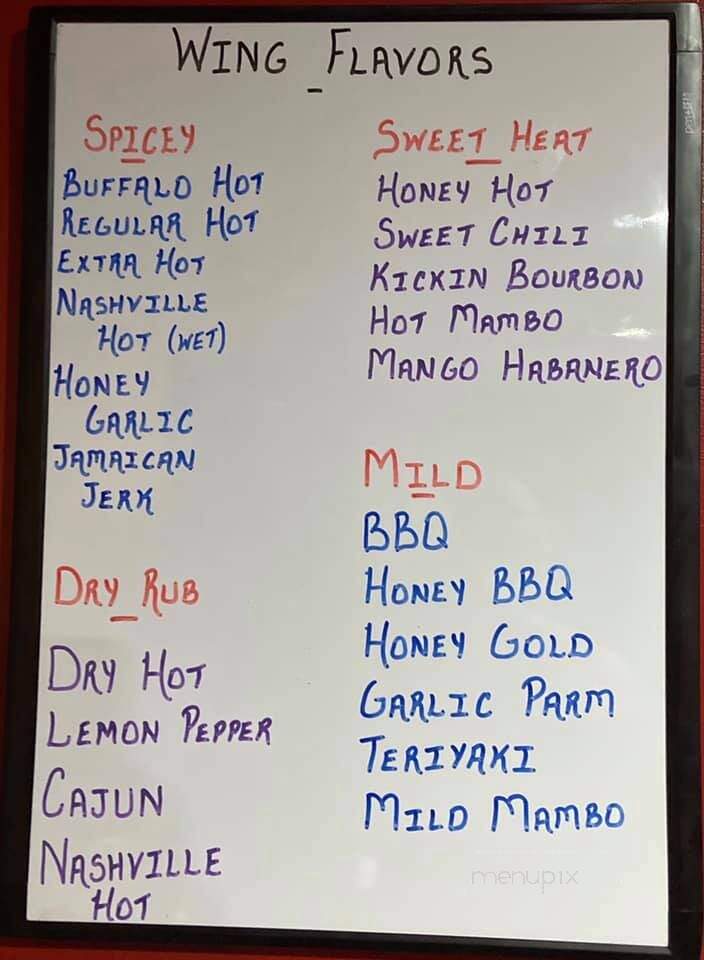 WING FLAVORS
SPICEY
BUFFALO HOT
REGULAR HOT
EXTRA HOT
NASHVILLE
HOT (WET)
HONEY
GARLIC
JAMAICAN
JERK
DRY RUB
DRY HOT
LEMON PEPPER
CAJUN
NASHVILLE
HOT
SWEET HEAT
HONEY HOT
SWEET CHILI
KICKIN BOURBON
HOT MAMBO
MANGO HABANERO
MILD
BBQ
HONEY BBQ
HONEY GOLD
GARLIC PARM
TERIYAKI
MILD MAMBO
menupix